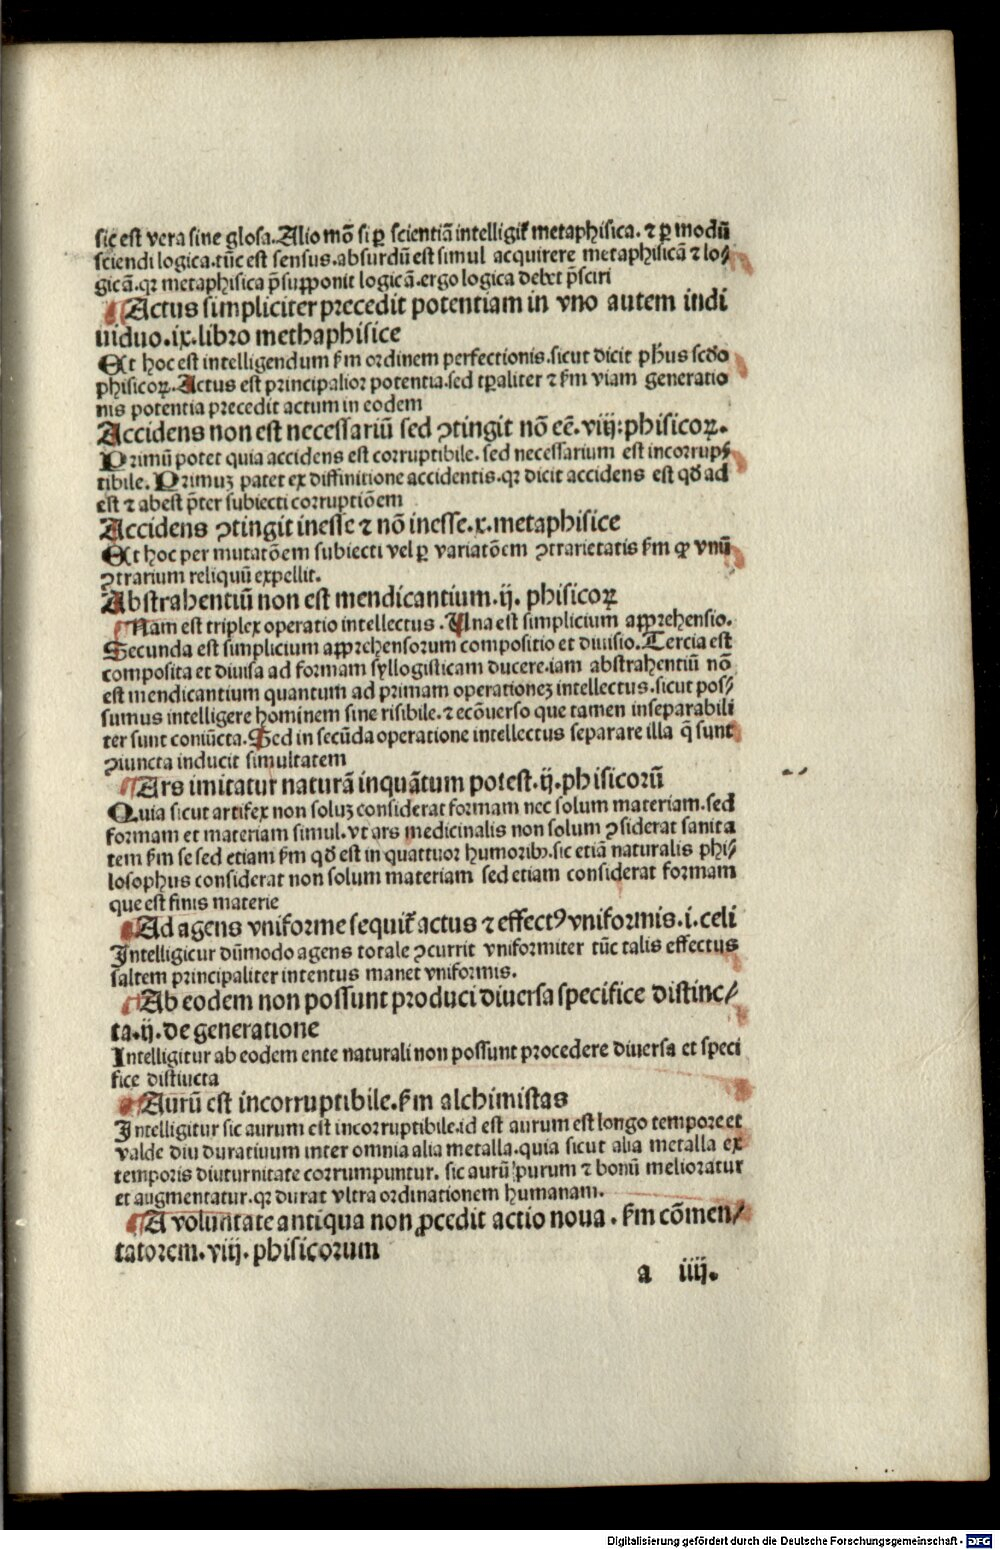 sic est vera sine glosa. Alio mõ si ꝑ scientiã intelligit᷑ metaphisica. ⁊ ꝑ modũ
sciendi logica. tũc est sensus. absurdũ est simul acquirere metaphisicã ⁊ lo⸗
gicã. qꝛ metaphisica p̃supponit logicã. ergo logica debet p̃sciri
Actus simpliciter precedit potentiam in vno autem indi
uiduo. ix. libro methaphisice
Et hoc est intelligendum ẜm ordinem perfectionis. sicut dicit ph̃us scďo
phisicoꝝ. Actus est principalior potentia. sed tꝑaliter ⁊ ẜm viam generatio
nis potentia precedit actum in eodem
Accidens non est necessariũ sed ↄtingit nõ eẽ. viij: phisicoꝝ.
Primũ potet quia accidens est corruptibile. sed necessarium est incorrup⸗
tibile. Primuꝫ patet ex diffinitione accidentis. qꝛ dicit accidens est qđ ad
est ⁊ abest p̃ter subiecti corruptiõem
Accidens ↄtingit inesse ⁊ nõ inesse. x. metaphisice
Et hoc per mutatõem subiecti vel ꝑ variatõem ↄtrarietatis ẜm ꝙ vnũ
ↄtrarium reliquũ expellit.
Abstrahentiũ non est mendicantium. ij. phisicoꝝ
Nam est triplex operatio intellectus. Una est simplicium apprehensio.
Secunda est simplicium apprehensorum compositio et diuisio. Tercia est
composita et diuisa ad formam syllogisticam ducere. iam abstrahentiũ nõ
est mendicantium quantum ad primam operationeꝫ intellectus. sicut pos⸗
sumus intelligere hominem sine risibile. ⁊ ecõuerso que tamen inseparabili
ter sunt coniũcta. Sed in secũda operatione intellectus separare illa q̃ sunt
ↄiuncta inducit simultatem
Ars imitatur naturã inquãtum potest. ij. phisicorũ
Quia sicut artifex non soluꝫ considerat formam nec solum materiam. sed
formam et materiam simul. vt ars medicinalis non solum ↄsiderat sanita
tem ẜm se sed etiam ẜm qđ est in quattuor humoribꝰ. sic etiã naturalis phi⸗
losophus considerat non solum materiam sed etiam considerat formam
que est finis materie
Ad agens vniforme sequit᷑ actus ⁊ effectꝰ vniformis. i. celi
Intelligicur dũmodo agens totale ↄcurrit vniformiter tũc talis effectus
saltem principaliter intentus manet vniformis.
Ab eodem non possunt produci diuersa specifice distinc⸗
ta. ij. de generatione
Intelligitur ab eodem ente naturali non possunt procedere diuersa et speci
fice distiucta
Aurũ est incorruptibile. ẜm alchimistas
Intelligitur sic aurum est incorruptibile. id est aurum est longo tempore et
valde diu duratiuum inter omnia alia metalla. quia sicut alia metalla ex
temporis diuturnitate corrumpuntur. sic aurũ purum ⁊ bonũ melioratur
et augmentatur. qꝛ durat vltra ordinationem humanam.
A voluntate antiqua non ꝓcedit actio noua. ẜm cõmen⸗
tatorem. viij. phisicorum
a iiij.
Digitalisierung gefördert durch die Deutsche Forschungsgemeinschaft - DFG